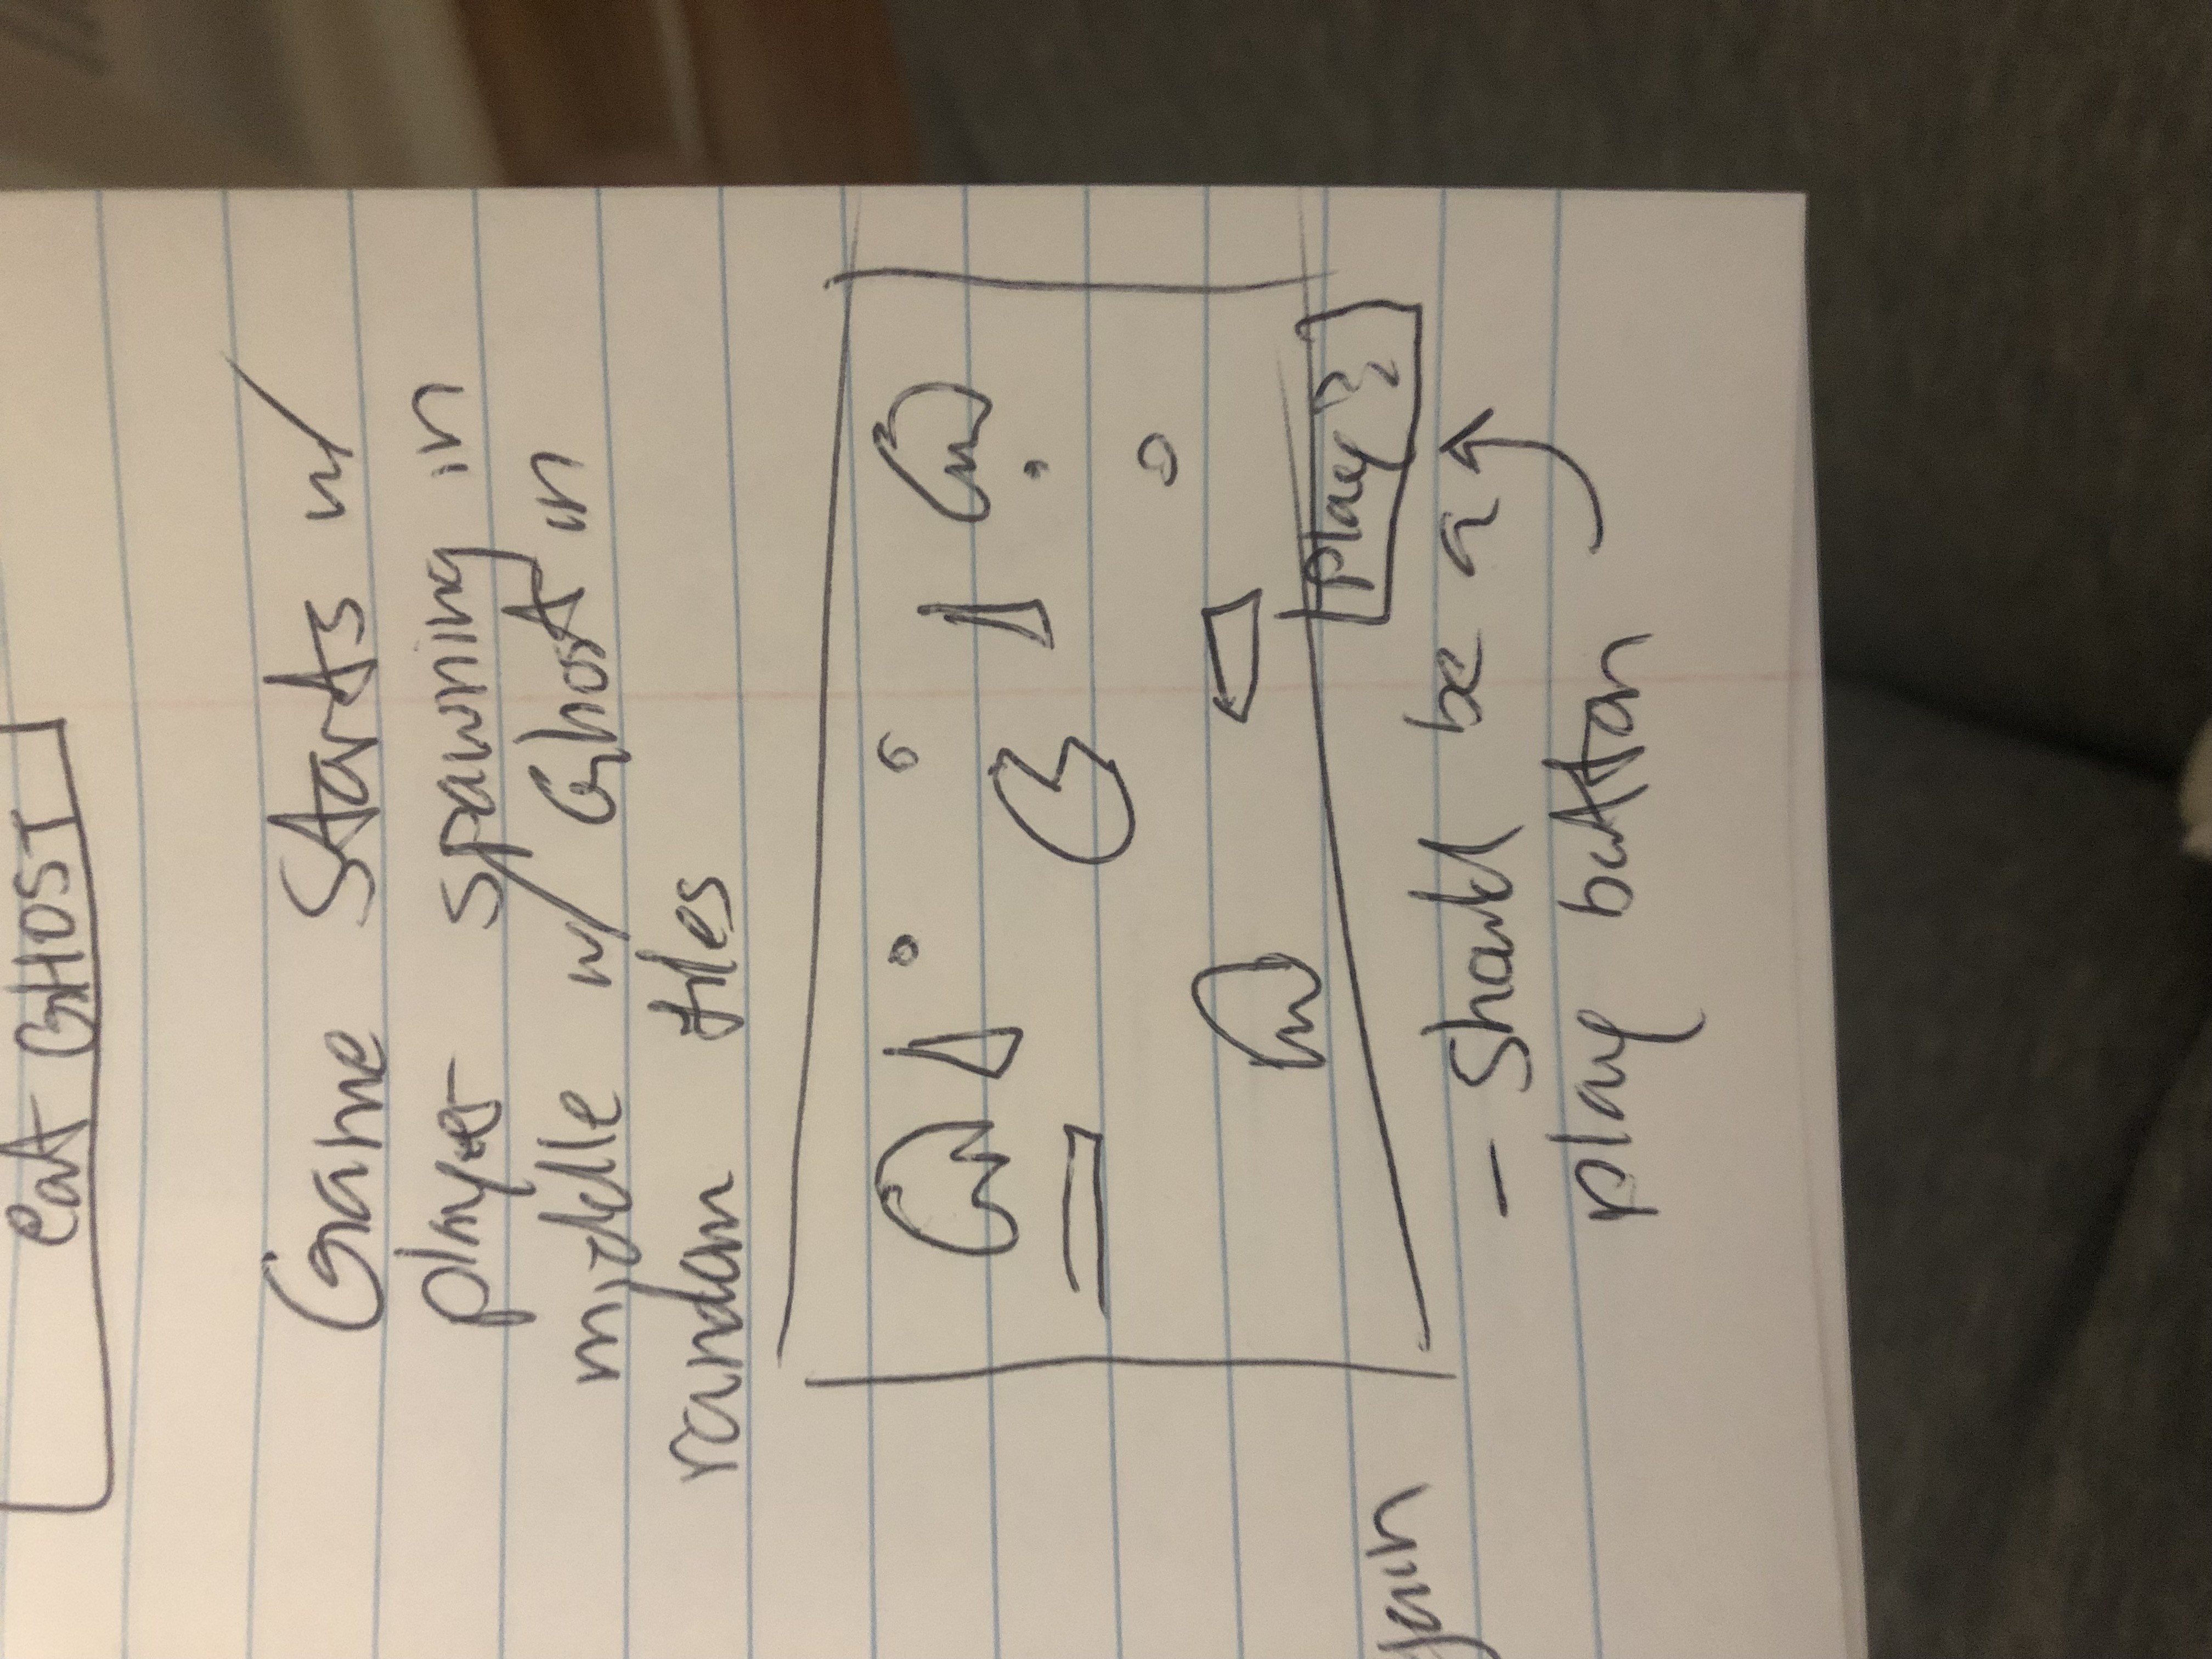 eat GHOST
Game Starts w/
player spawning in
middle w/ Ghost in
random tiles
Play?
- Should be a
play button